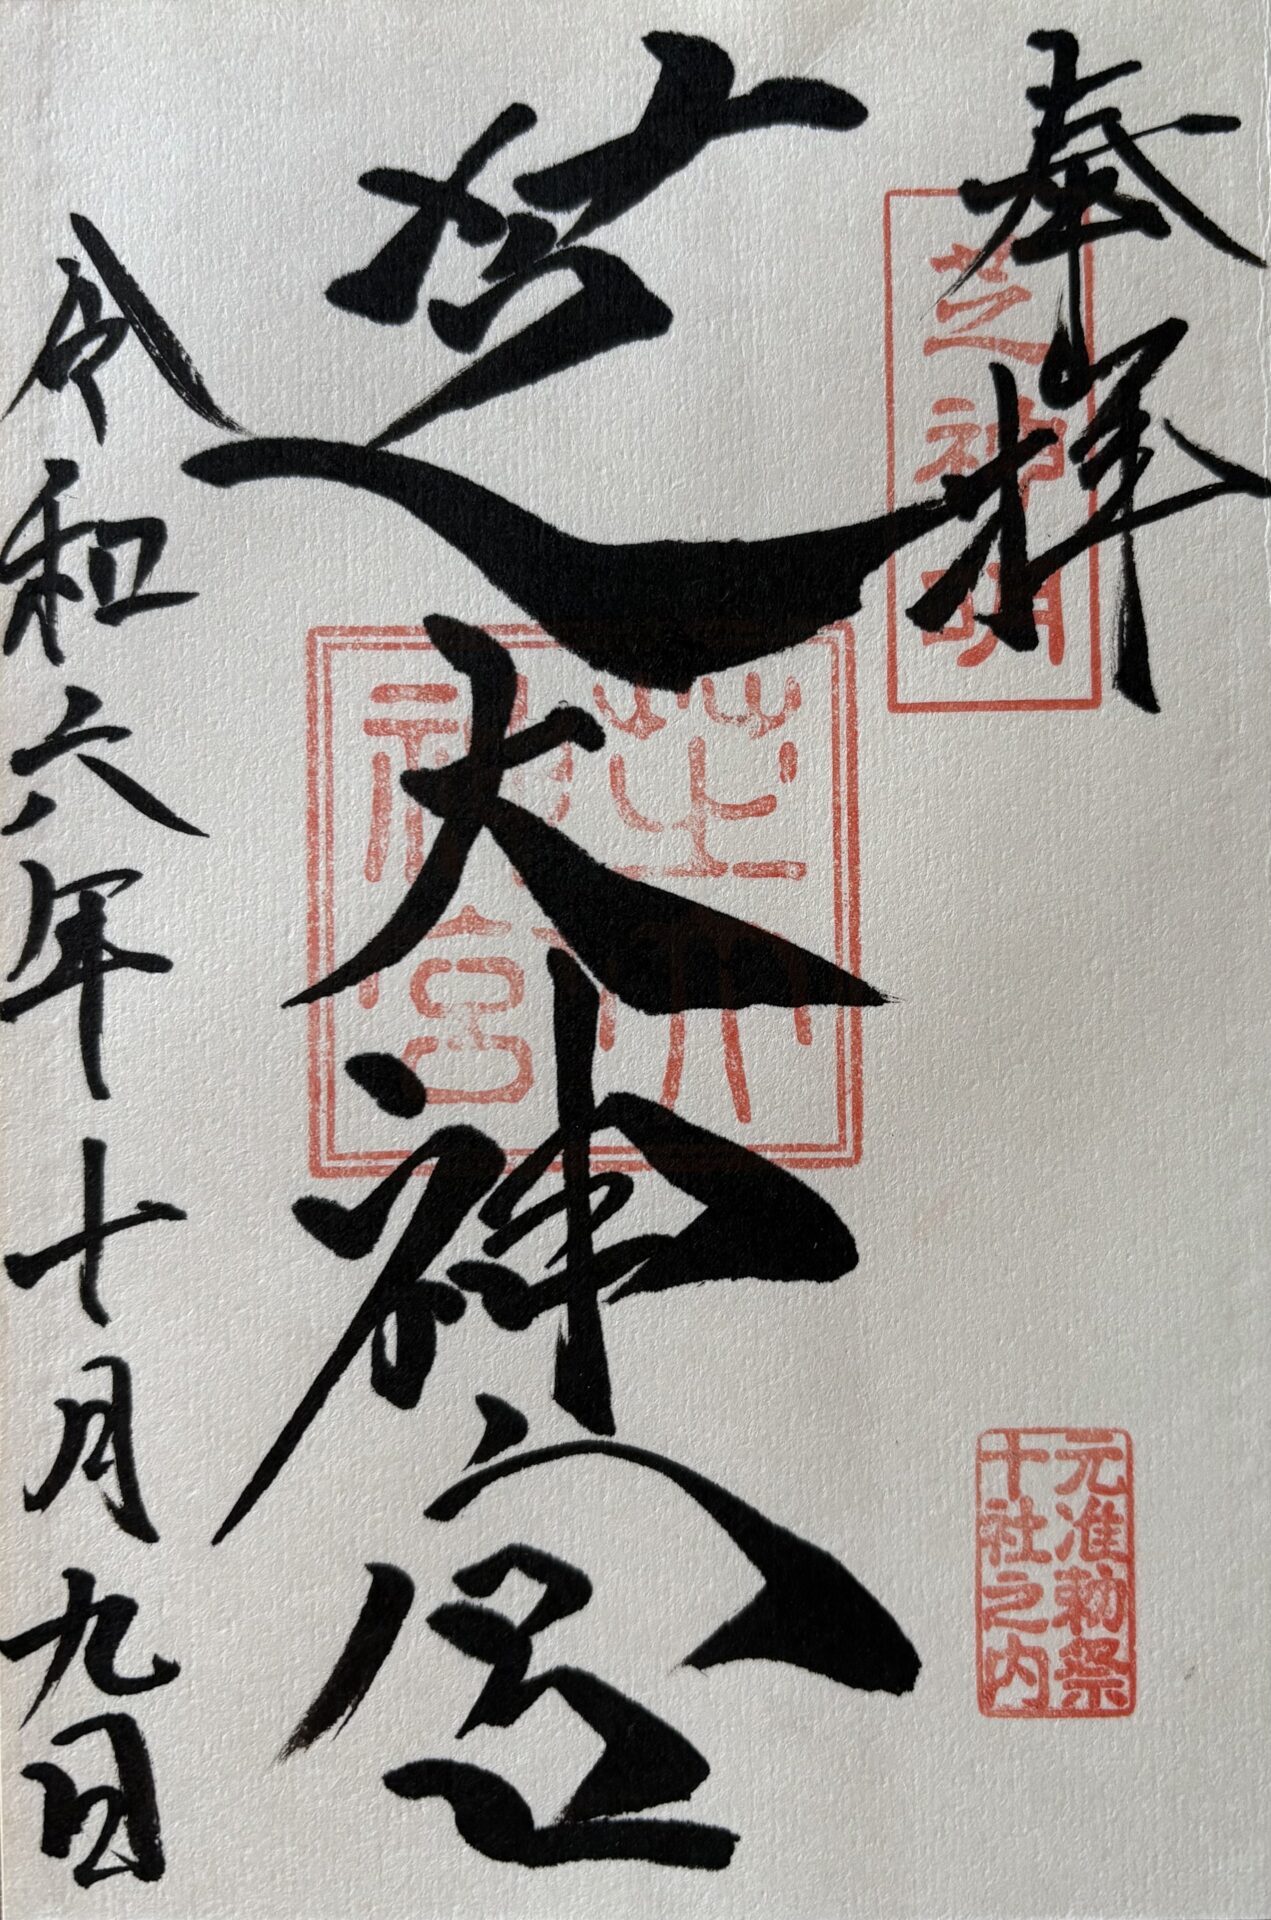 奉拝
芝神明
元准勅祭
十社之内
芝大神宮
芝大
神宮
令和六年十月九日